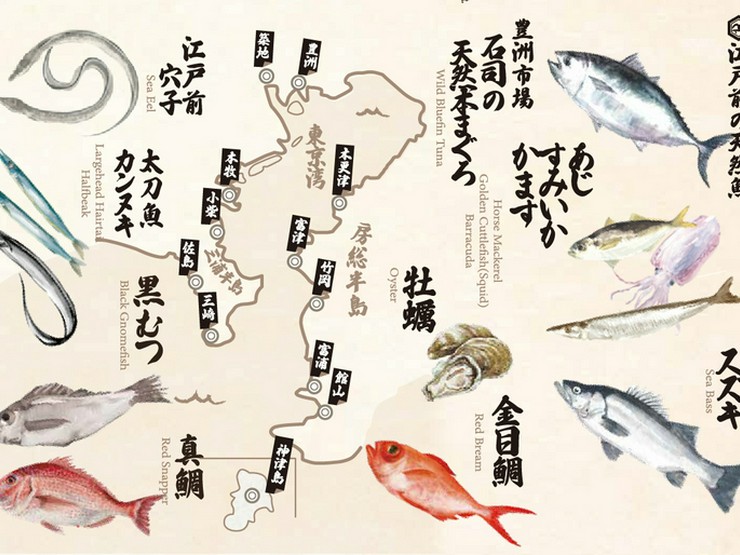 江戸前の天然魚
豊洲市場
石司の
天然本まぐろ
Wild Bluefin Tuna
あじ
すみいか
かます
Horse Mackerel
Golden Cuttlefish(Squid)
Barracuda
スズキ
Sea Bass
牡蠣
Oyster
金目鯛
Red Bream
江戸前
穴子
Sea Eel
太刀魚
カンヌキ
Largehead Hairtai
Halfbeak
黒むつ
Black Gnomefish
真鯛
Red Snapper
築地
豊洲
東京湾
本牧
木更津
小柴
富津
佐島
三浦半島
竹岡
房総半島
三崎
富浦
館山
神津島